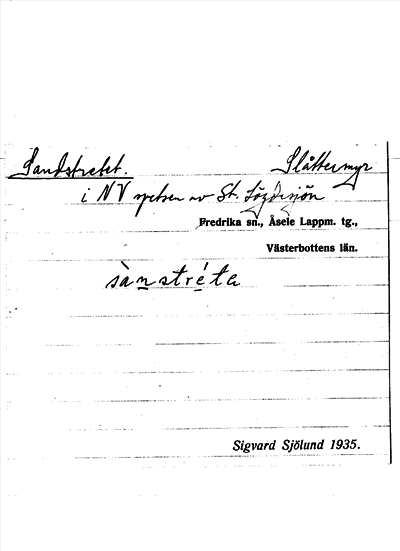 Sandstretet. Slåttermyr
i NV spetsen av St. Lögdasjön
Fredrika sn., Åsele Lappm. tg.,
Västerbottens län.
sànstréta
Sigvard Sjölund 1935.